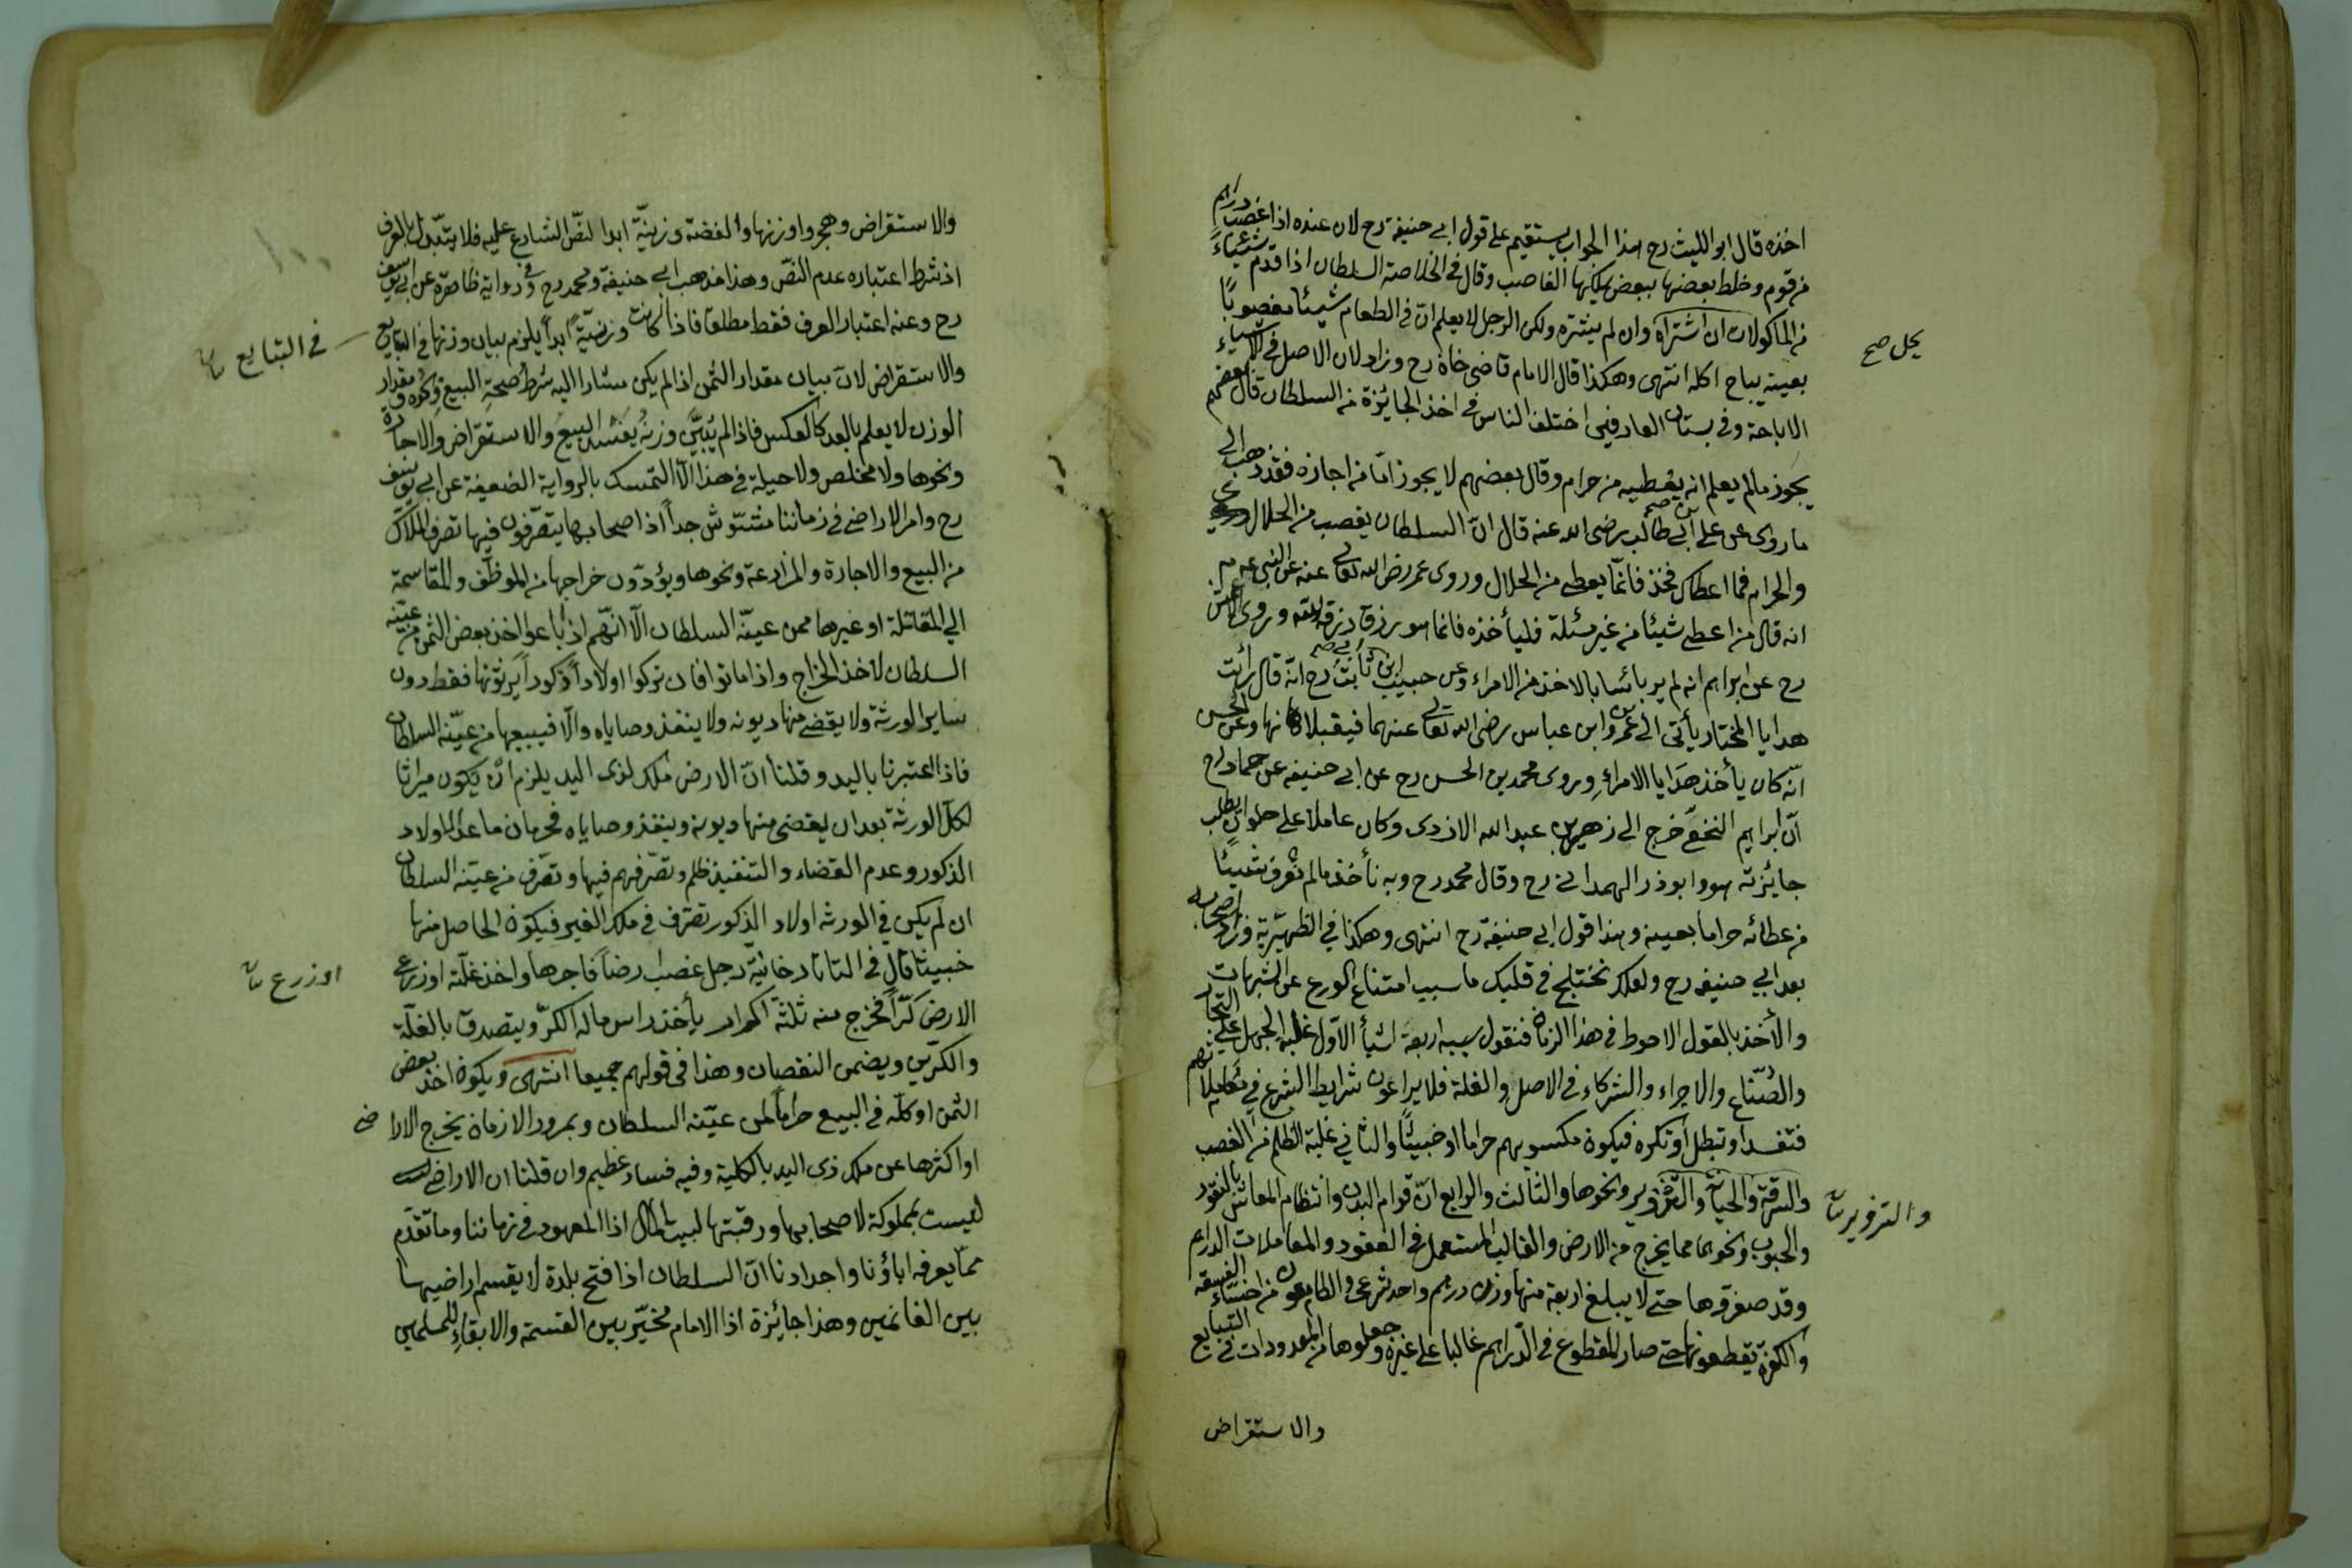 اخذه قال ابو الليث رح هذا الجواب يستقيم على قول ابى حنيفة رح لان عنده اذا غصب دراهم
من قوم وخلط بعضها ببعض يملكها الغاصب وقال فى الخلاصة السلطان اذا قدم شيئاء
من المأكولات ان اشتراه وان لم يشتره ولكن الرجل لا يعلم ان فى الطعام شيئا مغصوبا
يحل صح
بعينه يباح اكله انتهى وهكذا قال الامام قاضى خان رح وزاد لان الاصل فى الاشياء
الاباحة وفى بستان العارفين اختلف الناس فى اخذ الجائزة من السلطان قال بعضهم
يجوز ما لم يعلم انه يعطيه من حرام وقال بعضهم لا يجوز اما من اجازه فقد ذهب الى
ما روى عن على بن ابى طالب رضى الله عنه قال ان السلطان يغصب من الحلال
والحرام فما اعطاك فخذ فانما يعطى من الحلال وروى عمر رضى الله تعالى عنه عن النبى عم
انه قال من اعطى شيئا من غير مسئلة فليأخذه فانما هو رزق رزقه الله وروى الاعمش
رح عن ابراهيم انه لم ير بائسا بالاخذ من الامراء وعن حبيب ابن ابى ثابت رح انه قال رأيت
هدايا المختار يأتى الى ابن عمر وابن عباس رضى الله تعالى عنهما فيقبلانها وعن الحسن
انه كان يأخذ هدايا الامراء وروى محمد بن الحسن رح عن ابى حنيفه عن حماد رح
ان ابراهيم النخعى خرج الى زهير بن عبد الله الازدى وكان عاملا على حلوان يطلب
جايزته هو وابو ذر الهمدانى رح وقال محمد رح وبه نأخذ ما لم نعرف شيئا
من عطائه حراما بعينه وهذا قول ابى حنيفة رح انتهى وهكذا فى الظهيرية وزاد واصحابه
بعد ابى حنيفه رح ولعلك تختلج فى قلبك ما سبب امتناع الورع عن الشبهات
والأخذ بالقول الاحوط فى هذا الزمان فنقول سببه اربعة اشيأ الاول غلبة الجهل على التجار
والصناع والاجراء والشركاء فى الاصل والغلة فلا يراعون شرايط الشرع فى معاملاتهم
فتفسد او تبطل او تكره فيكون مكسوبهم حراما او خبيثا والثانى غلبة الظلم من الغصب
والسرقة والخيانة والتزوير ونحوها والثالث والرابع ان قوام البدن وانتظام المعاش بالنقود
والتزوير
والحبوب ونحوهما مما يخرج من الارض والغالب المستعمل فى العقود والمعاملات الدراهم
وقد صغروها حتى لا يبلغ اربعة منها وزن درهم واحد شرعى والطامعون من اخساء الفسقه
والكفرة يقطعونها حتى صار المقطوع فى الدراهم غالبا على غيره وجعلوها من المعدودات فى التبايع
والاستقراض
والاستقراض وهجروا وزنها والفضة وزنية ابدا لنص الشارع عليه فلا يتبدل بالعرف
اذ شرط اعتباره عدم النص وهذا مذهب ابى حنيفة ومحمد رح وفى رواية ظاهرة عن ابى يوسف
رح وعنه اعتبار العرف فقط مطلقا فاذا كانت وزنية ابدا يلزم بيان وزنها فى التبايع
فى التبايع
والاستقراض لان بيان مقدار الثمن اذا لم يكن مشارا اليه شرط صحة البيع ونحوه ومقدار
الوزن لا يعلم بالعد كالعكس فاذا لم يبين وزنه يفسد البيع والاستقراض والاجارة
ونحوها ولا مخلص ولا حيلة فى هذا الا التمسك بالرواية الضعيفة عن ابى يوسف
رح وامر الاراضى فى زماننا مشوش جدا اذ اصحابها يتصرفون فيها تصرف الملاك
من البيع والاجارة والمزارعة ونحوها ويؤدون خراجها من الموظف والمقاسمة
الى المقاتلة او غيرها ممن عينه السلطان الا انهم اذا باعوا اخذ بعض الثمن من عينه
السلطان لاخذ الخراج واذا ماتوا فان تركوا اولادا ذكورا يرثونها فقط دون
ساير الورثة ولا يقضى منها ديونه ولا ينفذ وصاياه والا فيبيعها من عينه السلطان
فاذا اعتبرنا باليد وقلنا ان الارض ملك لذى اليد يلزم ان يكون ميراثا
لكل الورثة بعد ان يقضى منها ديونه وينفذ وصاياه فحرمان ما عدا الاولاد
الذكور وعدم القضاء والتنفيذ ظلم وتصرفهم فيها وتصرف من عينه السلطان
ان لم يكن فى الورثه اولاد الذكور تصرف فى ملك الغير فيكون الحاصل منها
خبيثا قال فى التاتارخانية رجل غصب ارضا فاجرها واخذ غلته او زرع
او زرع
الارض كرا فخرج منه ثلثة اكرار يأخذ راس ماله الكر ويتصدق بالغلة
والكرين ويضمن النقصان وهذا فى قولهم جميعا انتهى ويكون اخذ بعض
الثمن او كله فى البيع حراما لمن عينه السلطان وبمرور الازمان يخرج الاراضى
او اكثرها عن ملك ذى اليد بالكلية وفيه فساد عظيم وان قلنا ان الاراضى
ليست بمملوكة لاصحابها ورقبتها لبيت المال اذ المعهود فى زماننا وما تقدم
مما يعرفه اباؤنا واجدادنا ان السلطان اذا فتح بلدة لا يقسم اراضيها
بين الغانمين وهذا جائزة اذ الامام مخير بين القسمة والابقاء للمسلمين